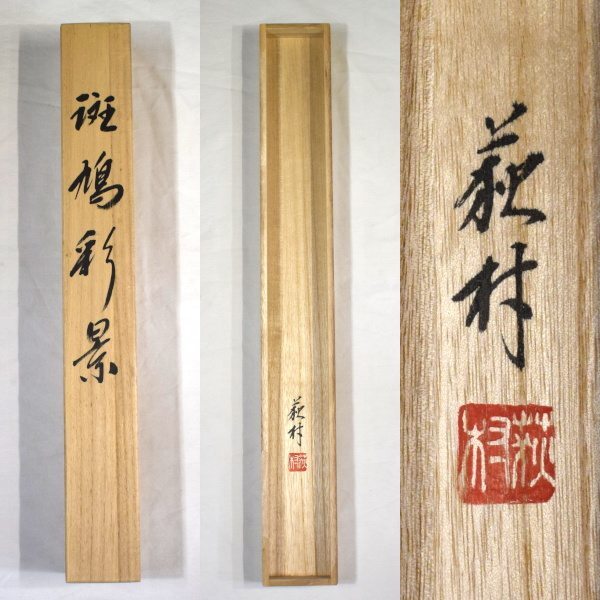 斑鳩彩景
萩村
萩村
萩村
萩村